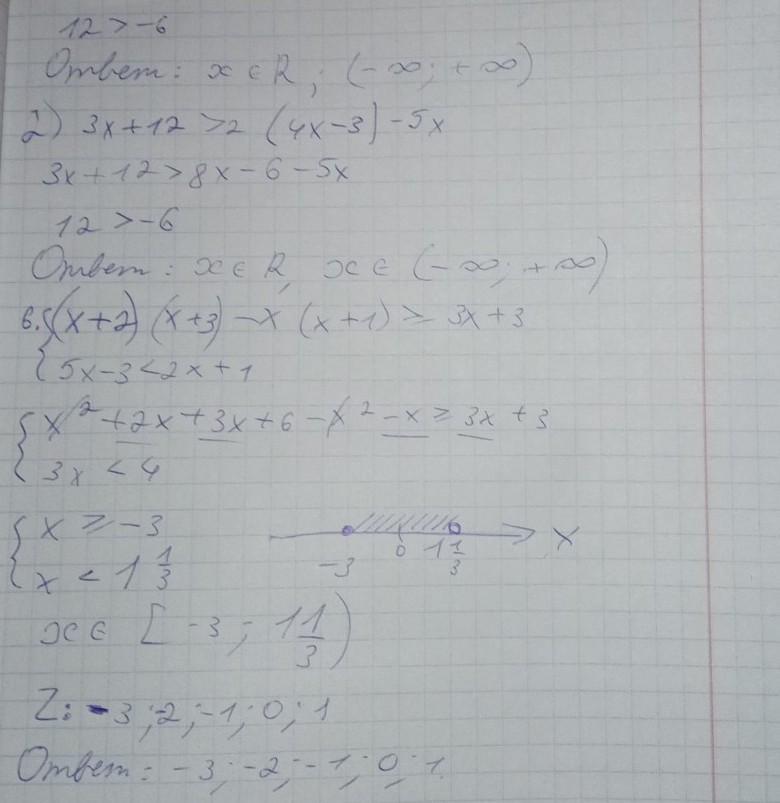 12 > -6
Ответ: x ∈ R; (-∞; +∞)
2) 3x+12 >2 (4x-3) -5x
3x+12>8x-6-5x
12 > -6
Ответ: x ∈ R, x ∈ (-∞; +∞)
6. { (x+2) (x+3) -x (x+1) ≥ 3x+3
5x-3<2x+1
{ x² +2x+3x+6 -x² -x ≥ 3x +3
3x < 4
{ x ≥ -3
x < 1 1/3
-3 0 1 1/3 x
x ∈ [-3; 1 1/3)
Z: -3; -2; -1; 0; 1
Ответ: -3; -2; -1; 0; 1.